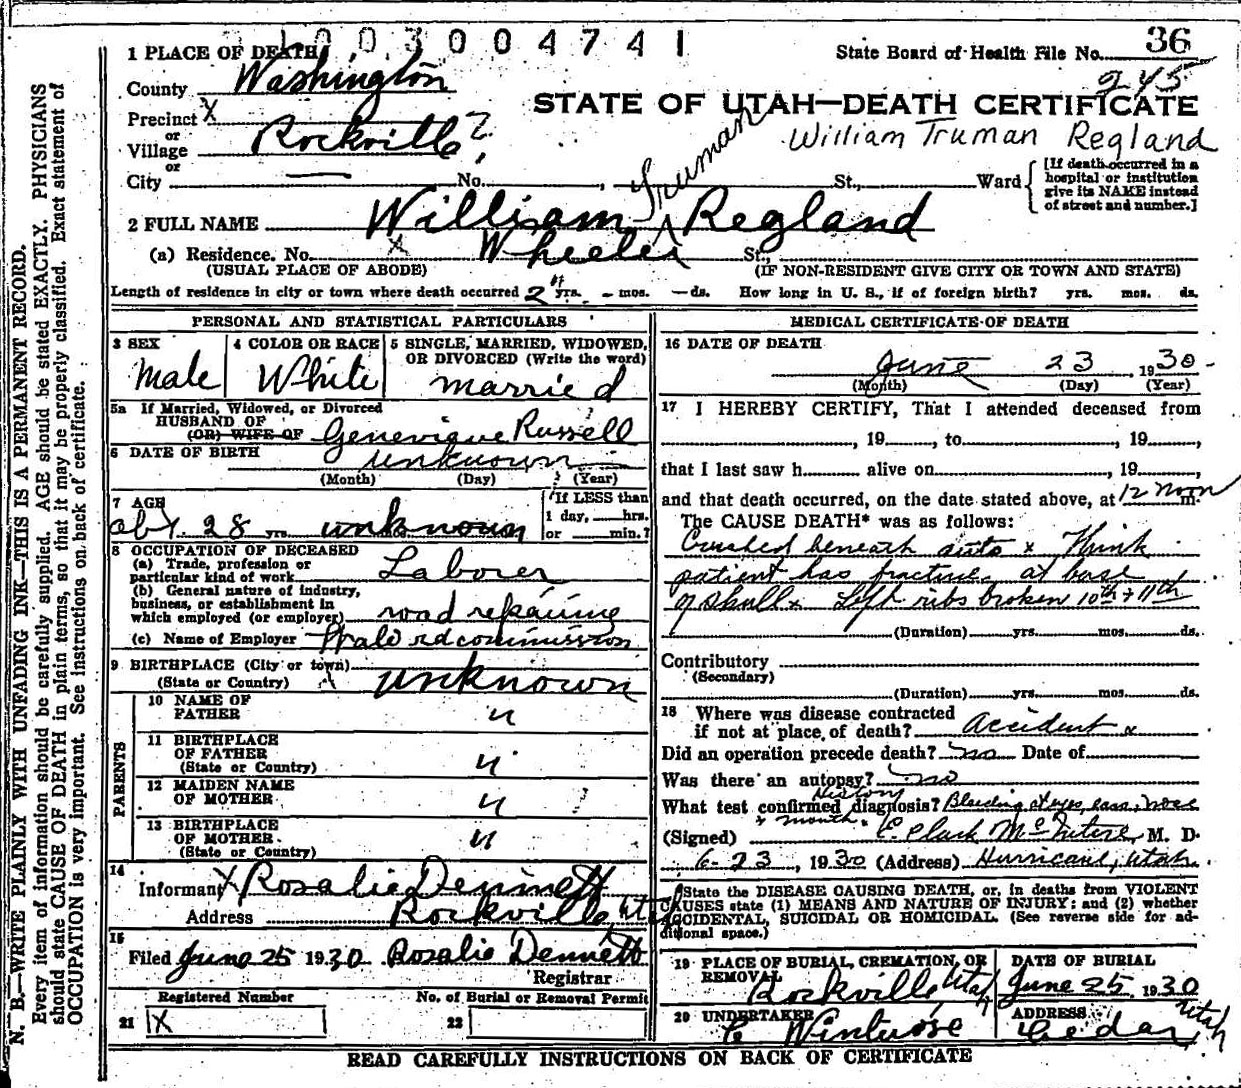 1003004741
1 PLACE OF DEATH
State Board of Health File No. 36
245
County Washington
STATE OF UTAH—DEATH CERTIFICATE
Precinct X
or
Village Rockville ?
William Truman Regland
or
City — No. , St., Ward
[If death occurred in a hospital or institution give its NAME instead of street and number.]
Truman
2 FULL NAME William Regland
(a) Residence. No. X St.,
(USUAL PLACE OF ABODE) (IF NON-RESIDENT GIVE CITY OR TOWN AND STATE)
Length of residence in city or town where death occurred 2 yrs. - mos. — ds. How long in U. S., if of foreign birth? yrs. mos. ds.
PERSONAL AND STATISTICAL PARTICULARS
3 SEX Male
4 COLOR OR RACE White
5 SINGLE, MARRIED, WIDOWED, OR DIVORCED (Write the word) married
5a If Married, Widowed, or Divorced
HUSBAND OF
(OR) WIFE OF Genevieve Russell
6 DATE OF BIRTH unknown
(Month) (Day) (Year)
7 AGE
abt. 28 yrs. unknown
If LESS than
1 day, hrs.
or min.?
8 OCCUPATION OF DECEASED
(a) Trade, profession or
particular kind of work Laborer
(b) General nature of industry,
business, or establishment in
which employed (or employer) road repairing
(c) Name of Employer rd commission
9 BIRTHPLACE (City or town)
(State or Country) X unknown
PARENTS
10 NAME OF
FATHER "
11 BIRTHPLACE
OF FATHER
(State or Country) "
12 MAIDEN NAME
OF MOTHER "
13 BIRTHPLACE
OF MOTHER
(State or Country) "
14
Informant X Rosalie Dennett
Address Rockville Utah
15
Filed June 25 1930 Rosalie Dennett
Registrar
Registered Number No. of Burial or Removal Permit
21 X 22
MEDICAL CERTIFICATE OF DEATH
16 DATE OF DEATH
June 23 1930
(Month) (Day) (Year)
17 I HEREBY CERTIFY, That I attended deceased from
, 19 , to , 19 ,
that I last saw h alive on , 19 ,
and that death occurred, on the date stated above, at 12 noon m.
The CAUSE DEATH* was as follows:
Crushed beneath auto x Think
patient has fracture at base
of skull x Left ribs broken 10th + 11th
(Duration) yrs. mos. ds.
Contributory
(Secondary)
(Duration) yrs. mos. ds.
18 Where was disease contracted
if not at place of death? Accident x
Did an operation precede death? no Date of
Was there an autopsy? no
History
What test confirmed diagnosis? Bleeding of eyes, ears, nose
+ mouth.
(Signed) E. Clark McIntire, M. D.
6-23, 1930 (Address) Hurricane, Utah
*State the DISEASE CAUSING DEATH, or, in deaths from VIOLENT
CAUSES state (1) MEANS AND NATURE OF INJURY; and (2) whether
ACCIDENTAL, SUICIDAL OR HOMICIDAL. (See reverse side for additional space.)
19 PLACE OF BURIAL, CREMATION, OR REMOVAL
Rockville Utah
DATE OF BURIAL
June 25 1930
20 UNDERTAKER
C Wintrose
ADDRESS
Cedar Utah
READ CAREFULLY INSTRUCTIONS ON BACK OF CERTIFICATE
N. B.—WRITE PLAINLY WITH UNFADING INK—THIS IS A PERMANENT RECORD.
Every item of information should be carefully supplied. AGE should be stated EXACTLY. PHYSICIANS
should state CAUSE OF DEATH in plain terms, so that it may be properly classified. Exact statement of
OCCUPATION is very important. See instructions on back of certificate.